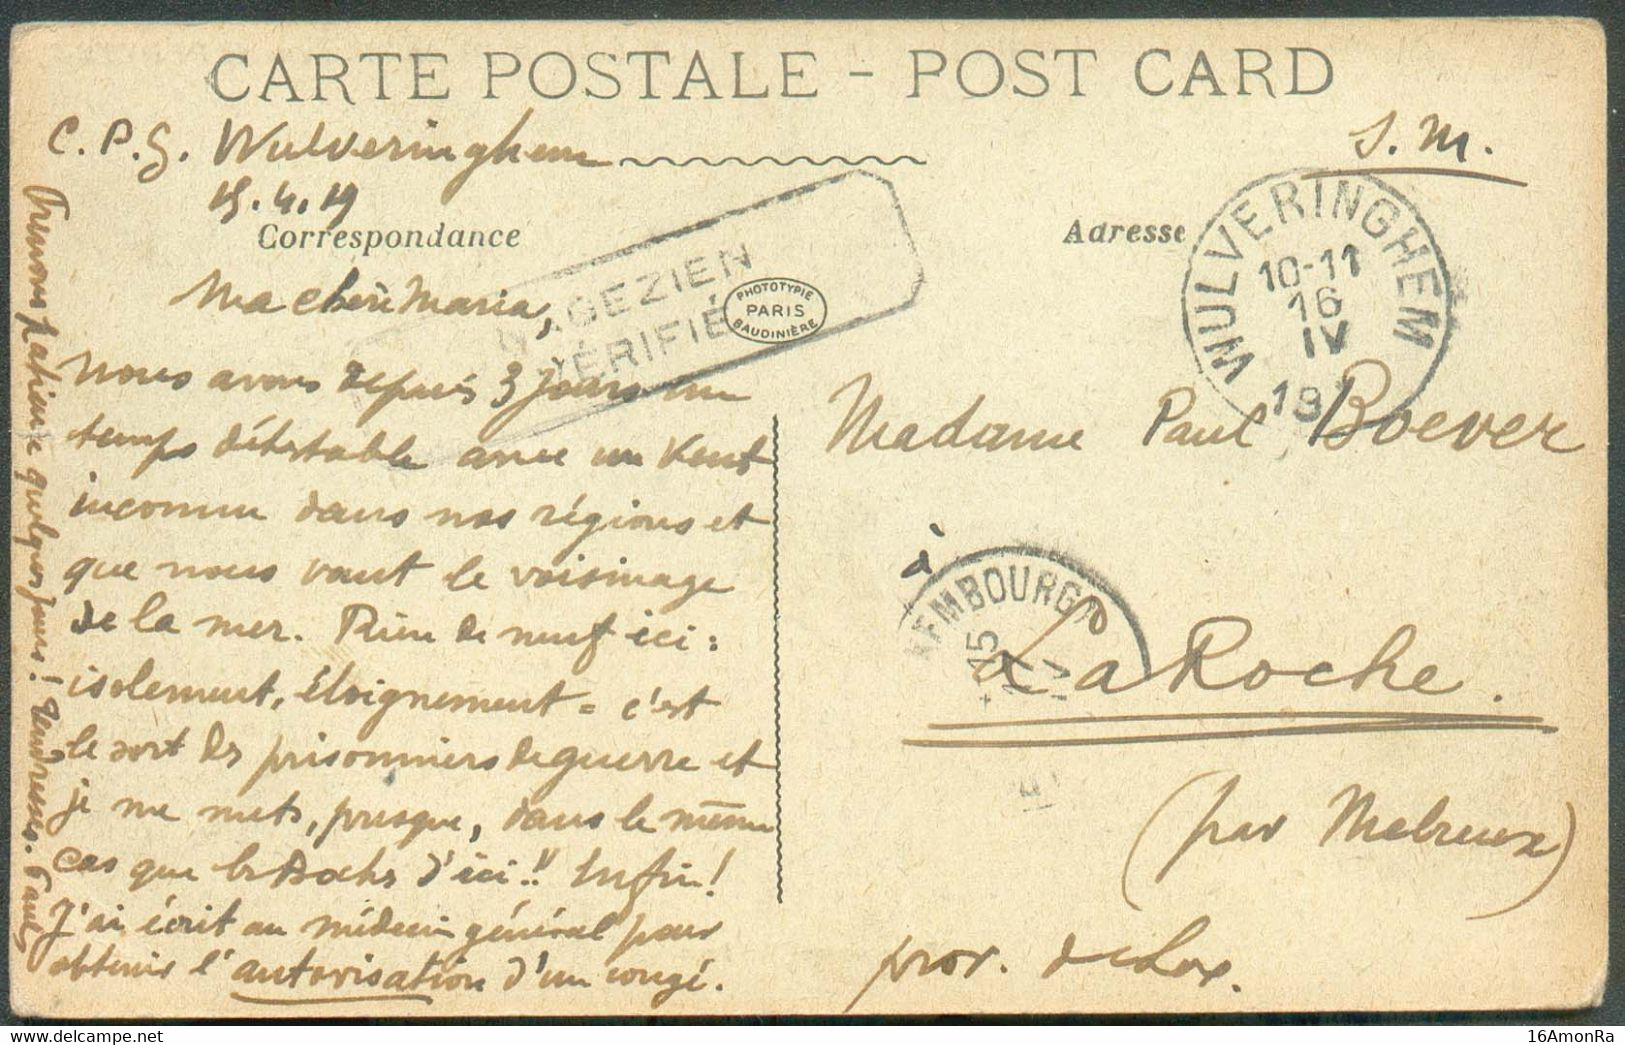 CARTE POSTALE - POST CARD
C. P. G. Wulveringhem
15.4.19
S. M.
Correspondance
Adresse
WULVERINGHEM
10-11
16
IV
19
NAGEZIEN
VÉRIFIÉ
PHOTOTYPIE
PARIS
BAUDINIÈRE
Ma chère Maria,
Nous avons depuis 3 jours un
temps détestable avec un vent
inconnu dans nos régions et
que nous vaut le voisinage
de la mer. Rien de neuf ici :
isolement, éloignement = c'est
le sort des prisonniers de guerre et
je me mets, presque, dans le même
cas que les Boches d'ici !! Enfin !
J'ai écrit au médecin général pour
obtenir l'autorisation d'un congé.
Prenons patience quelques jours ! Tendresses. Paul
Madame Paul Boever
à
EMBOURG
15
IV
La Roche.
(par Melreux)
prov. de Lux.
16AmonRa